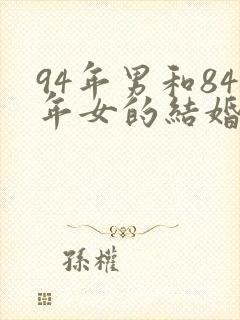 94年男和84
年女的結婚
孫權